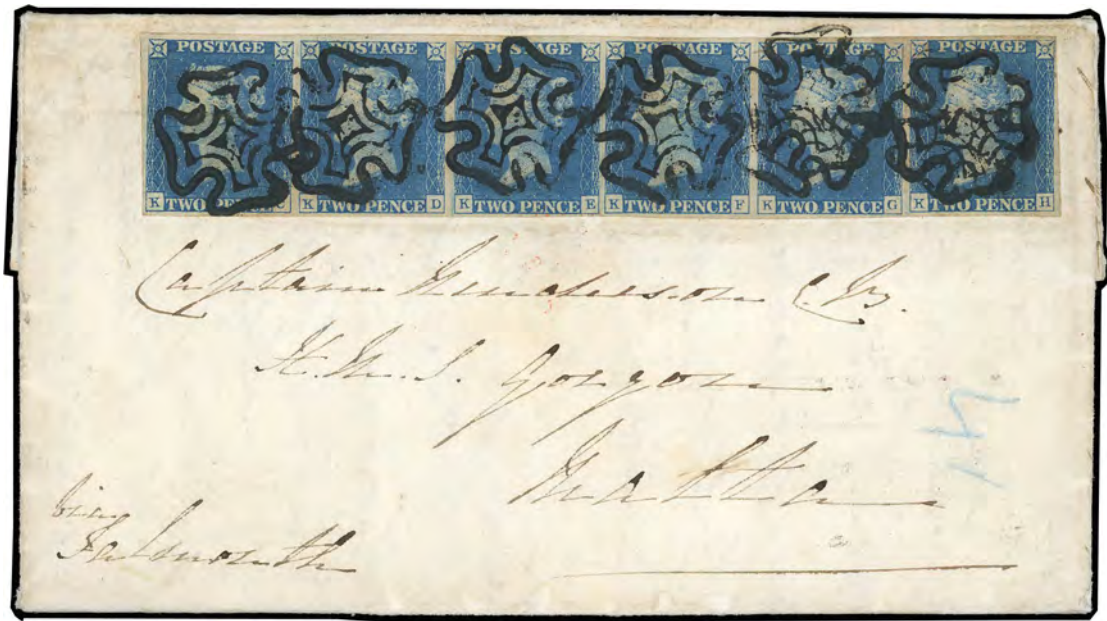 POSTAGE POSTAGE POSTAGE POSTAGE POSTAGE POSTAGE
K TWO PENCE K TWO PENCE D K TWO PENCE E K TWO PENCE F K TWO PENCE G K TWO PENCE H
Captain Henderson C.B.
H.M.S. Gorgon
Malta
via
Falmouth